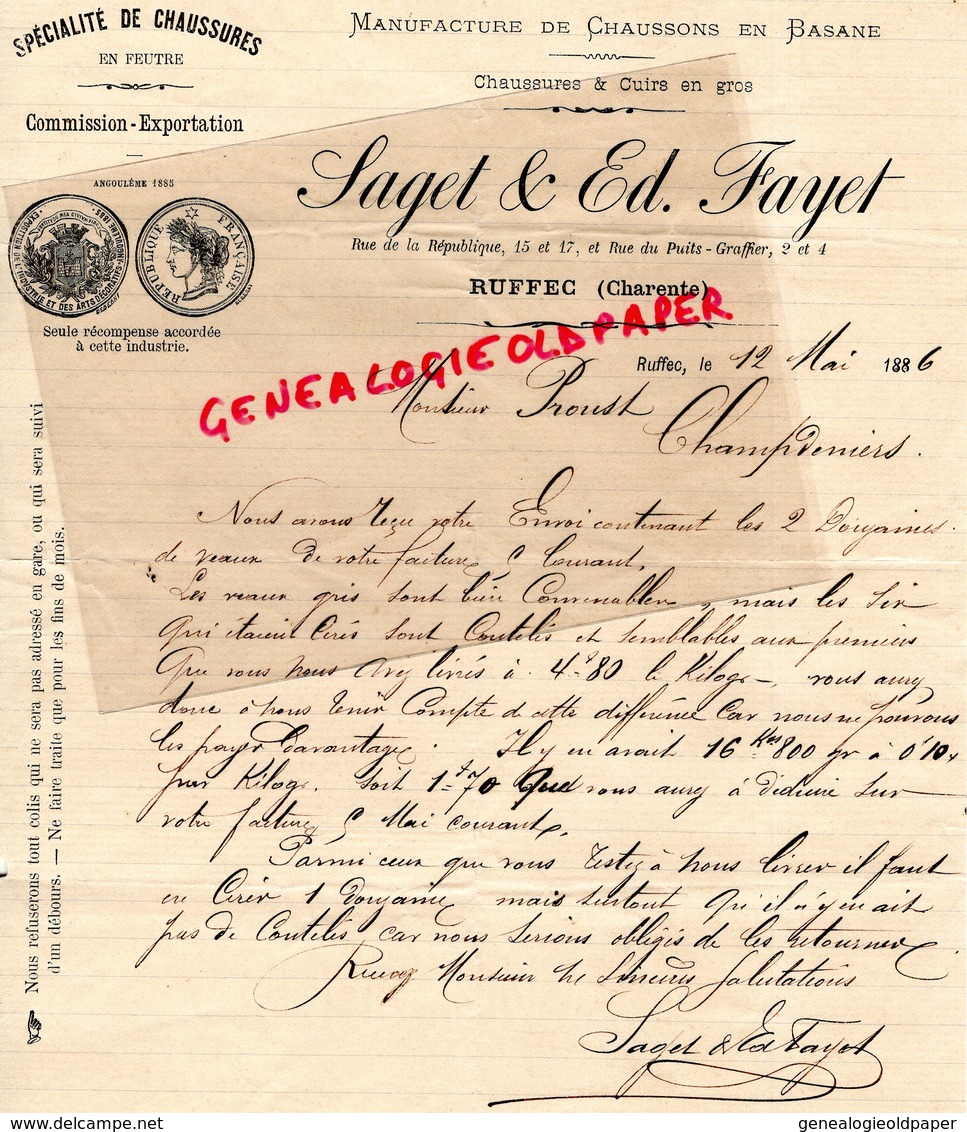 SPÉCIALITÉ DE CHAUSSURES
EN FEUTRE
Commission-Exportation
ANGOULÊME 1885
RÉPUBLIQUE FRANÇAISE
Seule récompense accordée
à cette industrie.
MANUFACTURE DE CHAUSSONS EN BASANE
Chaussures & Cuirs en gros
Saget & Ed. Fayet
Rue de la République, 15 et 17, et Rue du Puits-Graffier, 2 et 4
RUFFEC (Charente)
GENEALOGIEOLDPAPER
Ruffec, le 12 Mai 1886
Monsieur Proust
Champdeniers.
Nous avons reçu votre Envoi contenant les 2 Douzaines
de veaux de votre facture 5 Courant.
Les veaux gris sont bien Convenables, mais les six
qui étaient Cirés sont Coutelés et semblables aux premiers
Que vous nous avez livrés à 4f80 le Kilogr, vous aurez
donc à nous tenir Compte de cette différence car nous ne pouvons
les payer davantage. Il y en avait 16 Kos 800 gr à 0f10
par Kilogr. soit 1f70 Que vous aurez à déduire sur
votre facture 5 Mai courant.
Parmi ceux que vous restez à nous livrer il faut
en Cirer 1 Douzaine mais surtout qu'il n'y en ait
pas de Coutelés car nous serions obligés de les retourner.
Recevez Monsieur nos Sincères Salutations
Saget & Ed Fayet
Nous refuserons tout colis qui ne sera pas adressé en gare, ou qui sera suivi
d'un débours. — Ne faire traite que pour les fins de mois.
delcampe.net
genealogieoldpaper